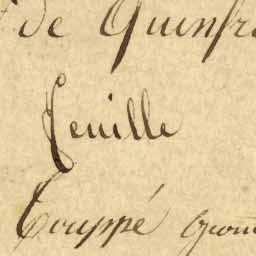 de Quinfr
feuille
Couppé